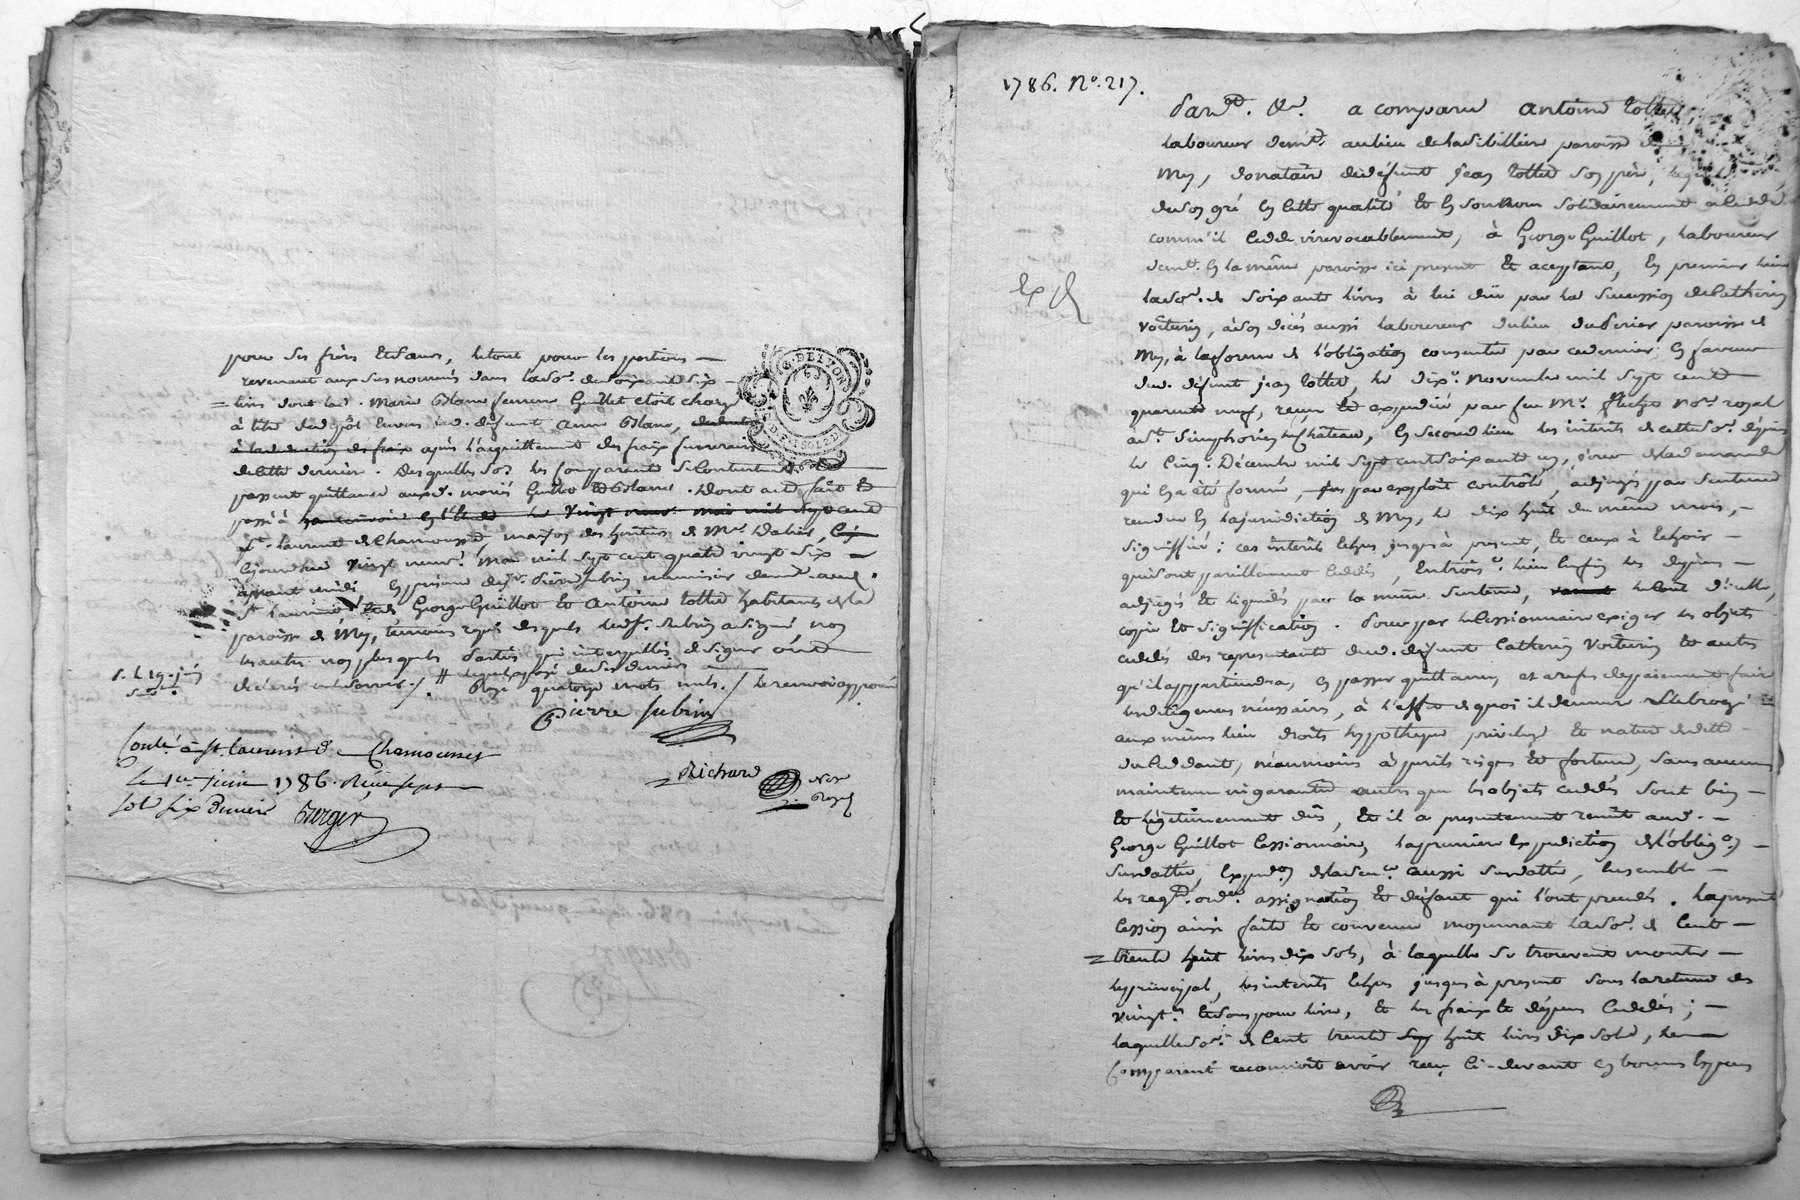 pour ses frères et sœurs, le tout pour les portions
revenant aux sus nommés dans lad. so.e de soixante six
livres dont lad. Marie Blanc femme Guillot etoit chargée
à titre de dépôt envers lad. défunte Anne Blanc,
à la déduction des frais après l'acquittement des frais funeraires
de cette derniere. Desquelles so.es les comparants se contentent et
passent quittance auxd. mariés Guillot et Blanc. Dont acte fait et
passé à le vingt neuf mai mil sept cent
St. Laurent de Chamousset maison des héritiers de Mr.
cejourdhui vingt neuf mai mil sept cent quatre vingt six
avant midi en présence de Sr. Pierre Subrin menuisier demt. aud.
St. Laurent George Guillot et Antoine Cottet habitants de la
paroisse de Mey, témoins requis desquels led. Sr. Subrin a signé non
les autres non plus que les parties qui interpellés de signer ont
déclaré ne le savoir ./.
Rayé quatorze mots nuls ./. le renvoi approuvé
s. l. 19. juin
G. DE LYON
Pierre Subrin
Conlé à St Laurent de Chamousset
le 1er juin 1786. Reçu sept
sols six deniers Berger
Richard
Nore
Royal
1786. No. 217.
Pardt. &a. a comparu Antoine Cottet
laboureur demt. au lieu de la Sibilliere paroisse de
Mey, donataire de défunt Jean Cottet son père, lequel
de son gré en cette qualité et en son nom solidairement a cédé
comm'il cede irrevocablement, à George Guillot, laboureur
demt. en la même paroisse ici present et aceptant, en premier lieu
la so.e de soixante livres à lui düe par la succession de Catherin
Voiturin, à son décès aussi laboureur du lieu du paroisse de
Mey, à la forme de l'obligation consentie par ce dernier en faveur
dud. défunt Jean Cottet, le dix.e novembre mil sept cent
quarante neuf, reçue et expediée par feu Me. nore. royal
à St. Simphorien le Château, en second lieu les intérêts de cette so.e depuis
le cinq.e Décembre mil sept cent soixante un, jour de la demande
qui en a été formée, par exploit controlé, adjugés par sentence
rendue en la jurisdiction de Mey, le dix huit du même mois,
signiffié; ces intérêts échus jusqu'à présent, et ceux à échoir
qui sont pareillement cédés, en trois.e lieu enfin les dépens
adjugés et liquidés par la même sentence, le coût d'icelle,
copie et signiffication. Pour par le cessionnaire exiger les objets
cédés des representants dud. défunt Catherin Voiturin et autres
qu'il appartiendra, en passer quittance, et à refus de paiement faire
les diligences nécessaires, à l'effet de quoi il demeure subrogé
aux mêmes lieu droits hypotheque privilege et nature de dette
du cédant, néanmoins à perils risques et fortune, sans aucune
maintenue ni garantie autres que les objets cédés sont bien
et légitimement dûs, et il a presentement remit aud.
George Guillot cessionnaire, la premiere expediction de l'oblig.on
susdattée, exped.on de la sen.ce aussi susdattée, ensemble
les reqte. orde. assignation et défaut qui l'ont precedé. La presente
cession ainsi faite et convenue moyennant la so.e de cent
trente huit livres dix sols, à laquelle se trouvent monter
le principal, les intérêts échus jusqu'à present sous la retenue des
vingt.es et sous pour livre, et les frais et dépens cédés;
laquelle so.e de cent trente huit livres dix sols, le
Comparant reconnoit avoir reçu ci-devant en bonnes especes